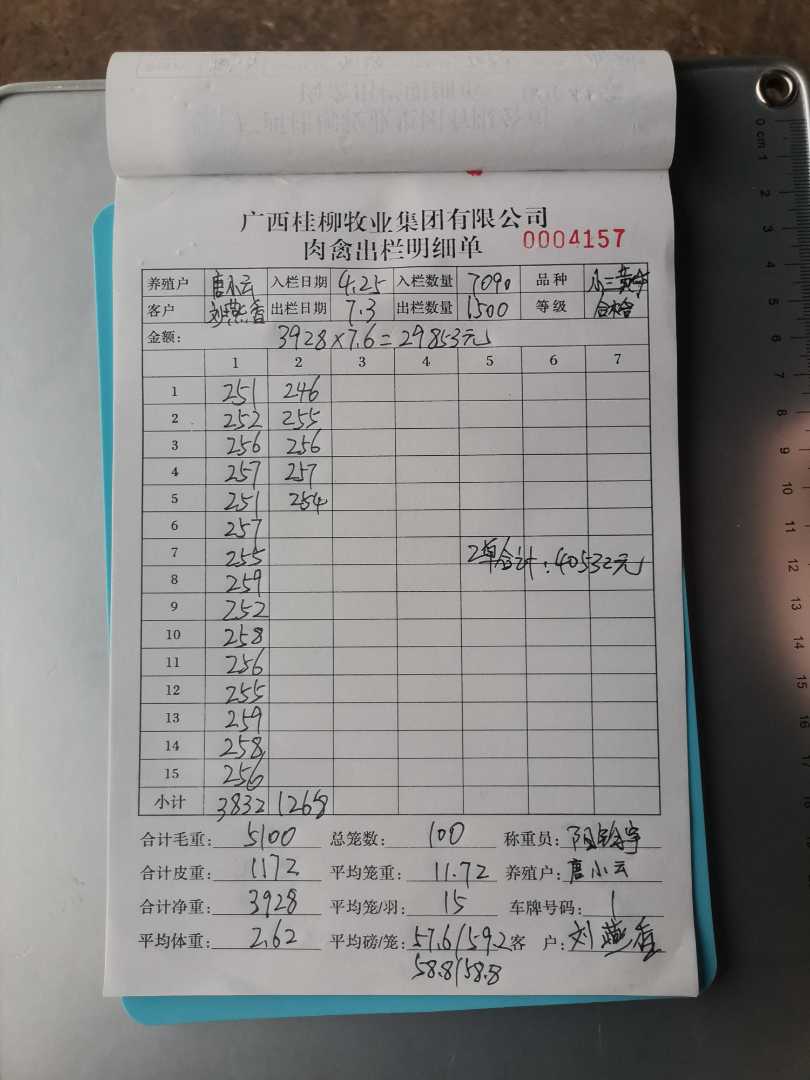 广西桂柳牧业集团有限公司
肉禽出栏明细单 0004157
养殖户 唐小云 入栏日期 4.25 入栏数量 7090 品种 小三黄
客户 刘燕香 出栏日期 7.3 出栏数量 1500 等级 合格
金额: 3928×7.6=29853元
1 2 3 4 5 6 7
1 251 246
2 252 255
3 256 256
4 257 257
5 251 254
6 257
7 255 2单合计:40532元
8 259
9 252
10 258
11 256
12 255
13 259
14 258
15 256
小计 3832 1268
合计毛重: 5100 总笼数: 100 称重员:
合计皮重: 1172 平均笼重: 11.72 养殖户: 唐小云
合计净重: 3928 平均笼/羽: 15 车牌号码: 1
平均体重: 2.62 平均磅/笼: 57.6/59.2 客 户: 刘燕香
58.8/58.8
0 cm 1
2
3
4
5
6
7
8
9
10
11
12
13
14
15
16